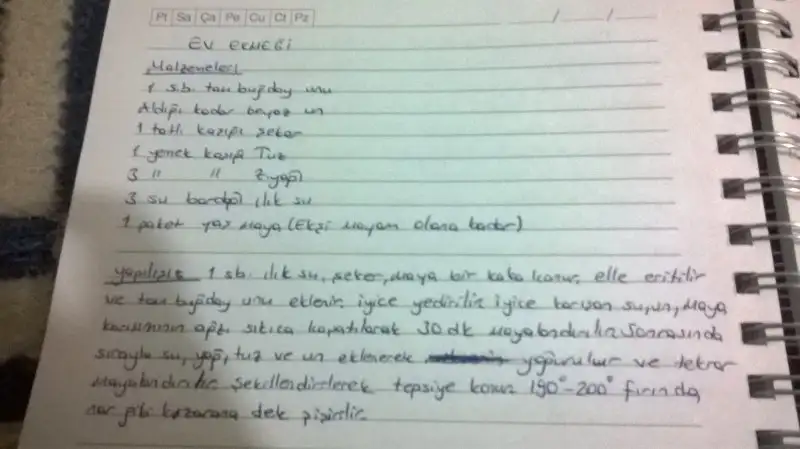 Pt Sa Ça Pe Cu Ct Pz / /
EV EKMEĞİ
Malzemeleri
1 s.b. tam buğday unu
Aldığı kadar beyaz un
1 tatlı kaşığı şeker
1 yemek kaşığı Tuz
3 " " Z.yağı
3 su bardağı ılık su
1 paket yaş maya (Ekşi mayam olana kadar)
Yapılışı: 1 sb. ılık su, şeker, maya bir kaba konur. elle eritilir
ve tam buğday unu eklenir. iyice yedirilir iyice karışan su, un, maya
karışımının ağzı sıkıca kapatılarak 30 dk mayalandırılır. Sonrasında
sırayla su, yağ, tuz ve un eklenerek yoğurulur ve tekrar
mayalandırılır. Şekillendirilerek tepsiye konur 190°-200° fırında
nar gibi kızarana dek pişirilir.